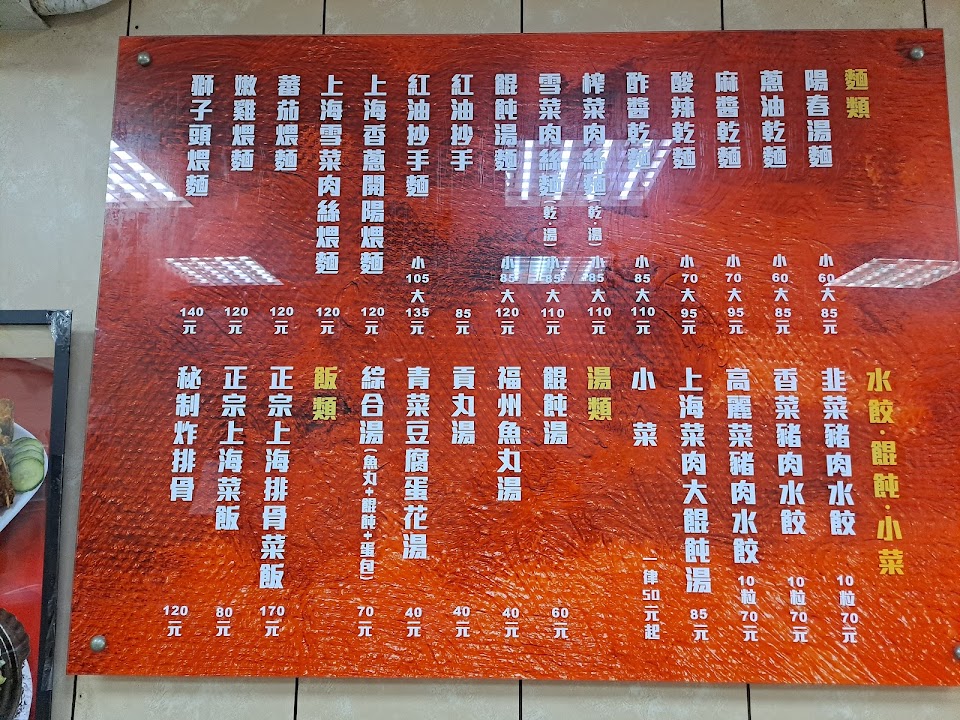 麵類
陽春湯麵 小60大85元
蔥油乾麵 小60大85元
麻醬乾麵 小70大95元
酸辣乾麵 小70大95元
酢醬乾麵 小85大110元
榨菜肉絲麵(乾‧湯) 小85大110元
雪菜肉絲麵(乾‧湯) 小85大110元
餛飩湯麵 小85大120元
紅油抄手 85元
紅油抄手麵 小105大135元
上海香蔥開陽煨麵 120元
上海雪菜肉絲煨麵 120元
蕃茄煨麵 120元
嫩雞煨麵 120元
獅子頭煨麵 140元
水餃‧餛飩‧小菜
韭菜豬肉水餃 10粒70元
香菜豬肉水餃 10粒70元
高麗菜豬肉水餃 10粒70元
上海菜肉大餛飩湯 85元
小菜 一律50元起
湯類
餛飩湯 60元
福州魚丸湯 40元
貢丸湯 40元
青菜豆腐蛋花湯 40元
綜合湯(魚丸+餛飩+蛋包) 70元
飯類
正宗上海排骨菜飯 170元
正宗上海菜飯 80元
秘制炸排骨 120元